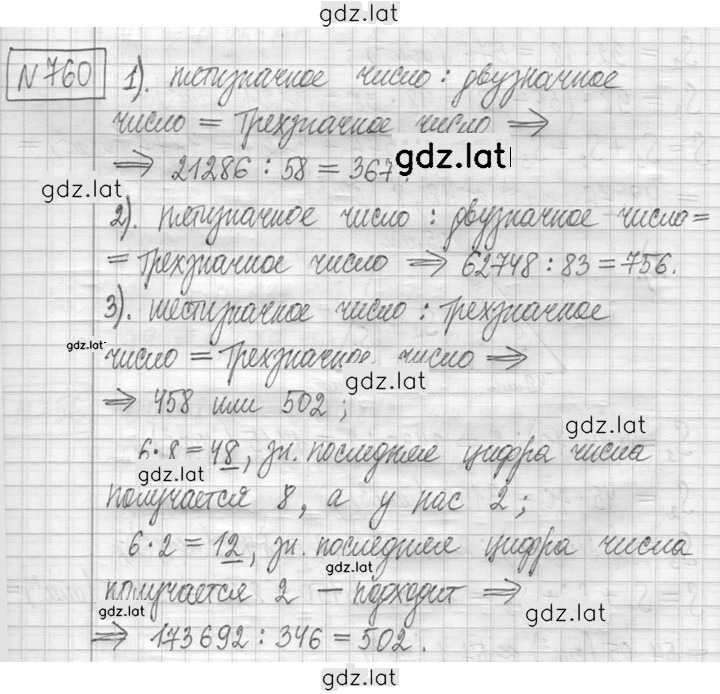 gdz.lat
№ 760 1). пятизначное число : двузначное
число = трехзначное число ⇒
gdz.lat
⇒ 21286 : 58 = 367.
gdz.lat
2). пятизначное число : двузначное число =
= трехзначное число ⇒ 62748 : 83 = 756.
3). шестизначное число : трехзначное
gdz.lat
число = трехзначное число ⇒
gdz.lat
⇒ 458 или 502 ;
gdz.lat
6·8=48, зн. последняя цифра числа
gdz.lat
получается 8, а у нас 2 ;
6·2=12, зн. последняя цифра числа
gdz.lat
получается 2 – подходит ⇒
gdz.lat
gdz.lat
⇒ 173692 : 346 = 502.
gdz.lat